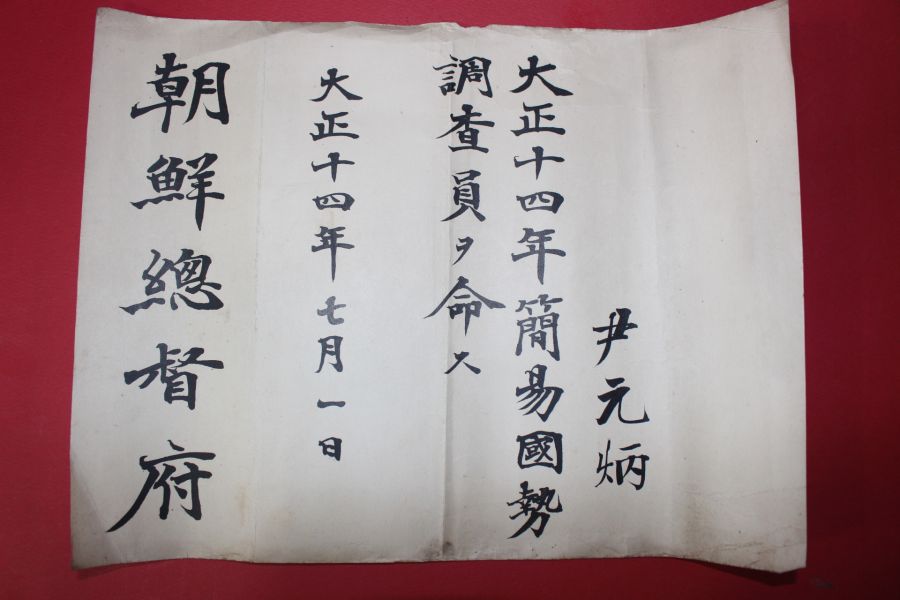 尹元炳
大正十四年簡易國勢
調査員ヲ命ス
大正十四年七月一日
朝鮮總督府